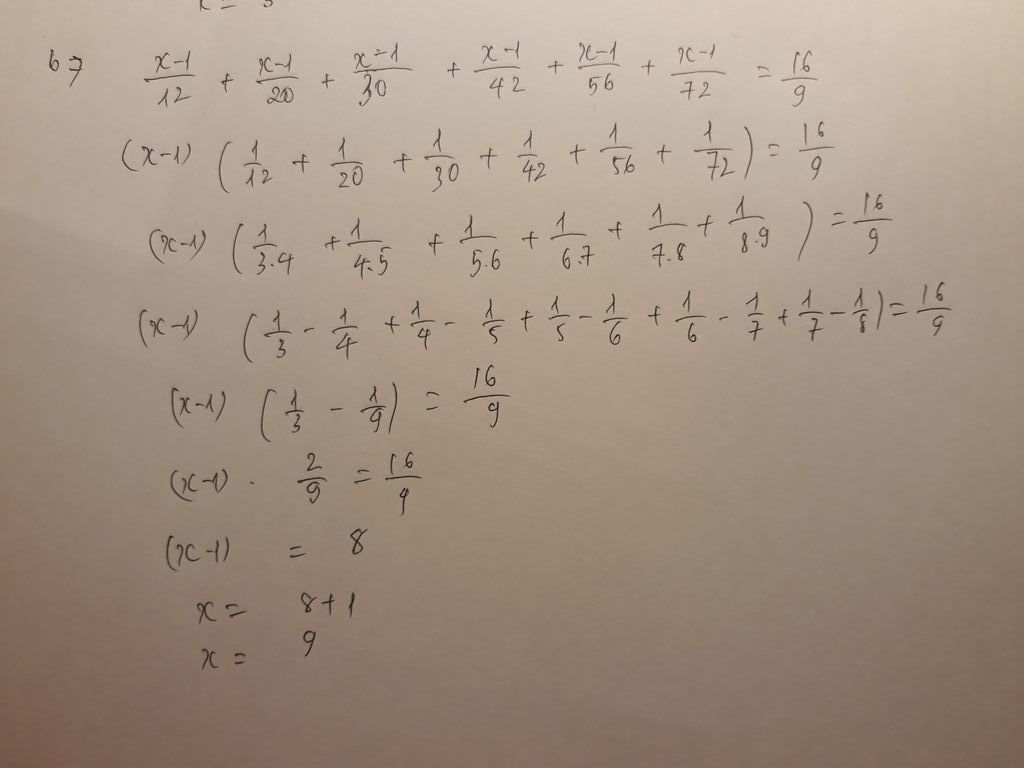 x = 3
b) (x-1)/12 + (x-1)/20 + (x-1)/30 + (x-1)/42 + (x-1)/56 + (x-1)/72 = 16/9
(x-1) (1/12 + 1/20 + 1/30 + 1/42 + 1/56 + 1/72) = 16/9
(x-1) (1/3.4 + 1/4.5 + 1/5.6 + 1/6.7 + 1/7.8 + 1/8.9) = 16/9
(x-1) (1/3 - 1/4 + 1/4 - 1/5 + 1/5 - 1/6 + 1/6 - 1/7 + 1/7 - 1/8) = 16/9
(x-1) (1/3 - 1/9) = 16/9
(x-1) . 2/9 = 16/9
(x-1) = 8
x = 8+1
x = 9